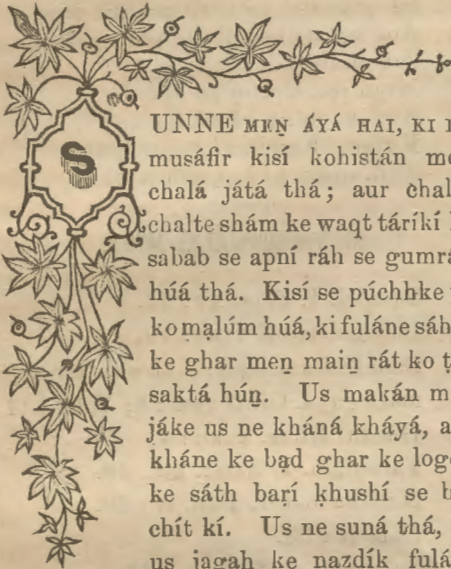 SUNNE MEṈ ÁYÁ HAI, KI
musáfir kisí kohistán
chalá játá thá; aur
chalte shám ke waqt táríkí
sabab se apní ráh se
húá thá. Kisí se púchhke
ko mạlúm húá, ki fuláne
ke ghar meṉ maiṉ rát ko
saktá húṉ. Us makán
jáke us ne kháná kháyá,
kháne ke bạd ghar ke
ke sáth baṛí ḳhushí se
chít kí. Us ne suná thá,
us jagah ke nazdík